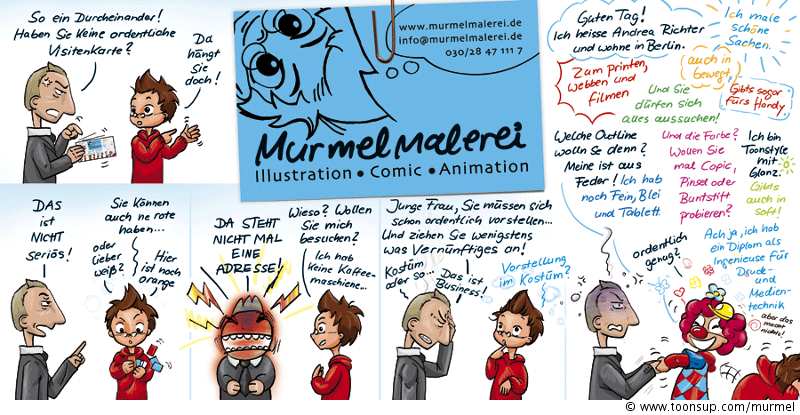 So ein Durcheinander!
Haben Sie keine ordentliche
Visitenkarte?
Da
hängt
Sie
doch!
www.murmelmalerei.de
info@murmelmalerei.de
030/28 47 111 7
MurmelMalerei
Illustration • Comic • Animation
DAS
ist
NICHT
seriös!
Sie können
auch ne rote
haben...
oder
lieber
weiß?
Hier
ist noch
orange
DA STEHT
NICHT MAL
EINE
ADRESSE!
Wieso? Wollen
Sie mich
besuchen?
Ich hab
keine Kaffee-
maschiene...
Junge Frau, Sie müssen sich
schon ordentlich vorstellen...
Und ziehen Sie wenigstens
was Vernünftiges an!
Kostüm
oder so...
Das ist
Business!
Vorstellung
im Kostüm?
Guten Tag!
Ich heisse Andrea Richter
und wohne in Berlin.
Ich male
schöne
Sachen.
Zum printen,
webben und
filmen
auch in
bewegt
Und Sie
dürfen sich
alles aussuchen!
Gibts sogar
fürs Handy
Welche Outline
wolln Se denn?
Meine ist aus
Feder! Ich hab
noch Fein, Blei
und Tablett.
Und die Farbe?
Wollen Sie
mal Copic,
Pinsel oder
Buntstift
probieren?
Ich bin
Toonstyle
mit
Glanz.
Gibts
auch in
soft!
ordentlich
genug?
Ach ja, ich hab
ein Diplom als
Ingenieuse für
Druck-
und
Medien-
technik
aber das
macht
nichts!
© www.toonsup.com/murmel